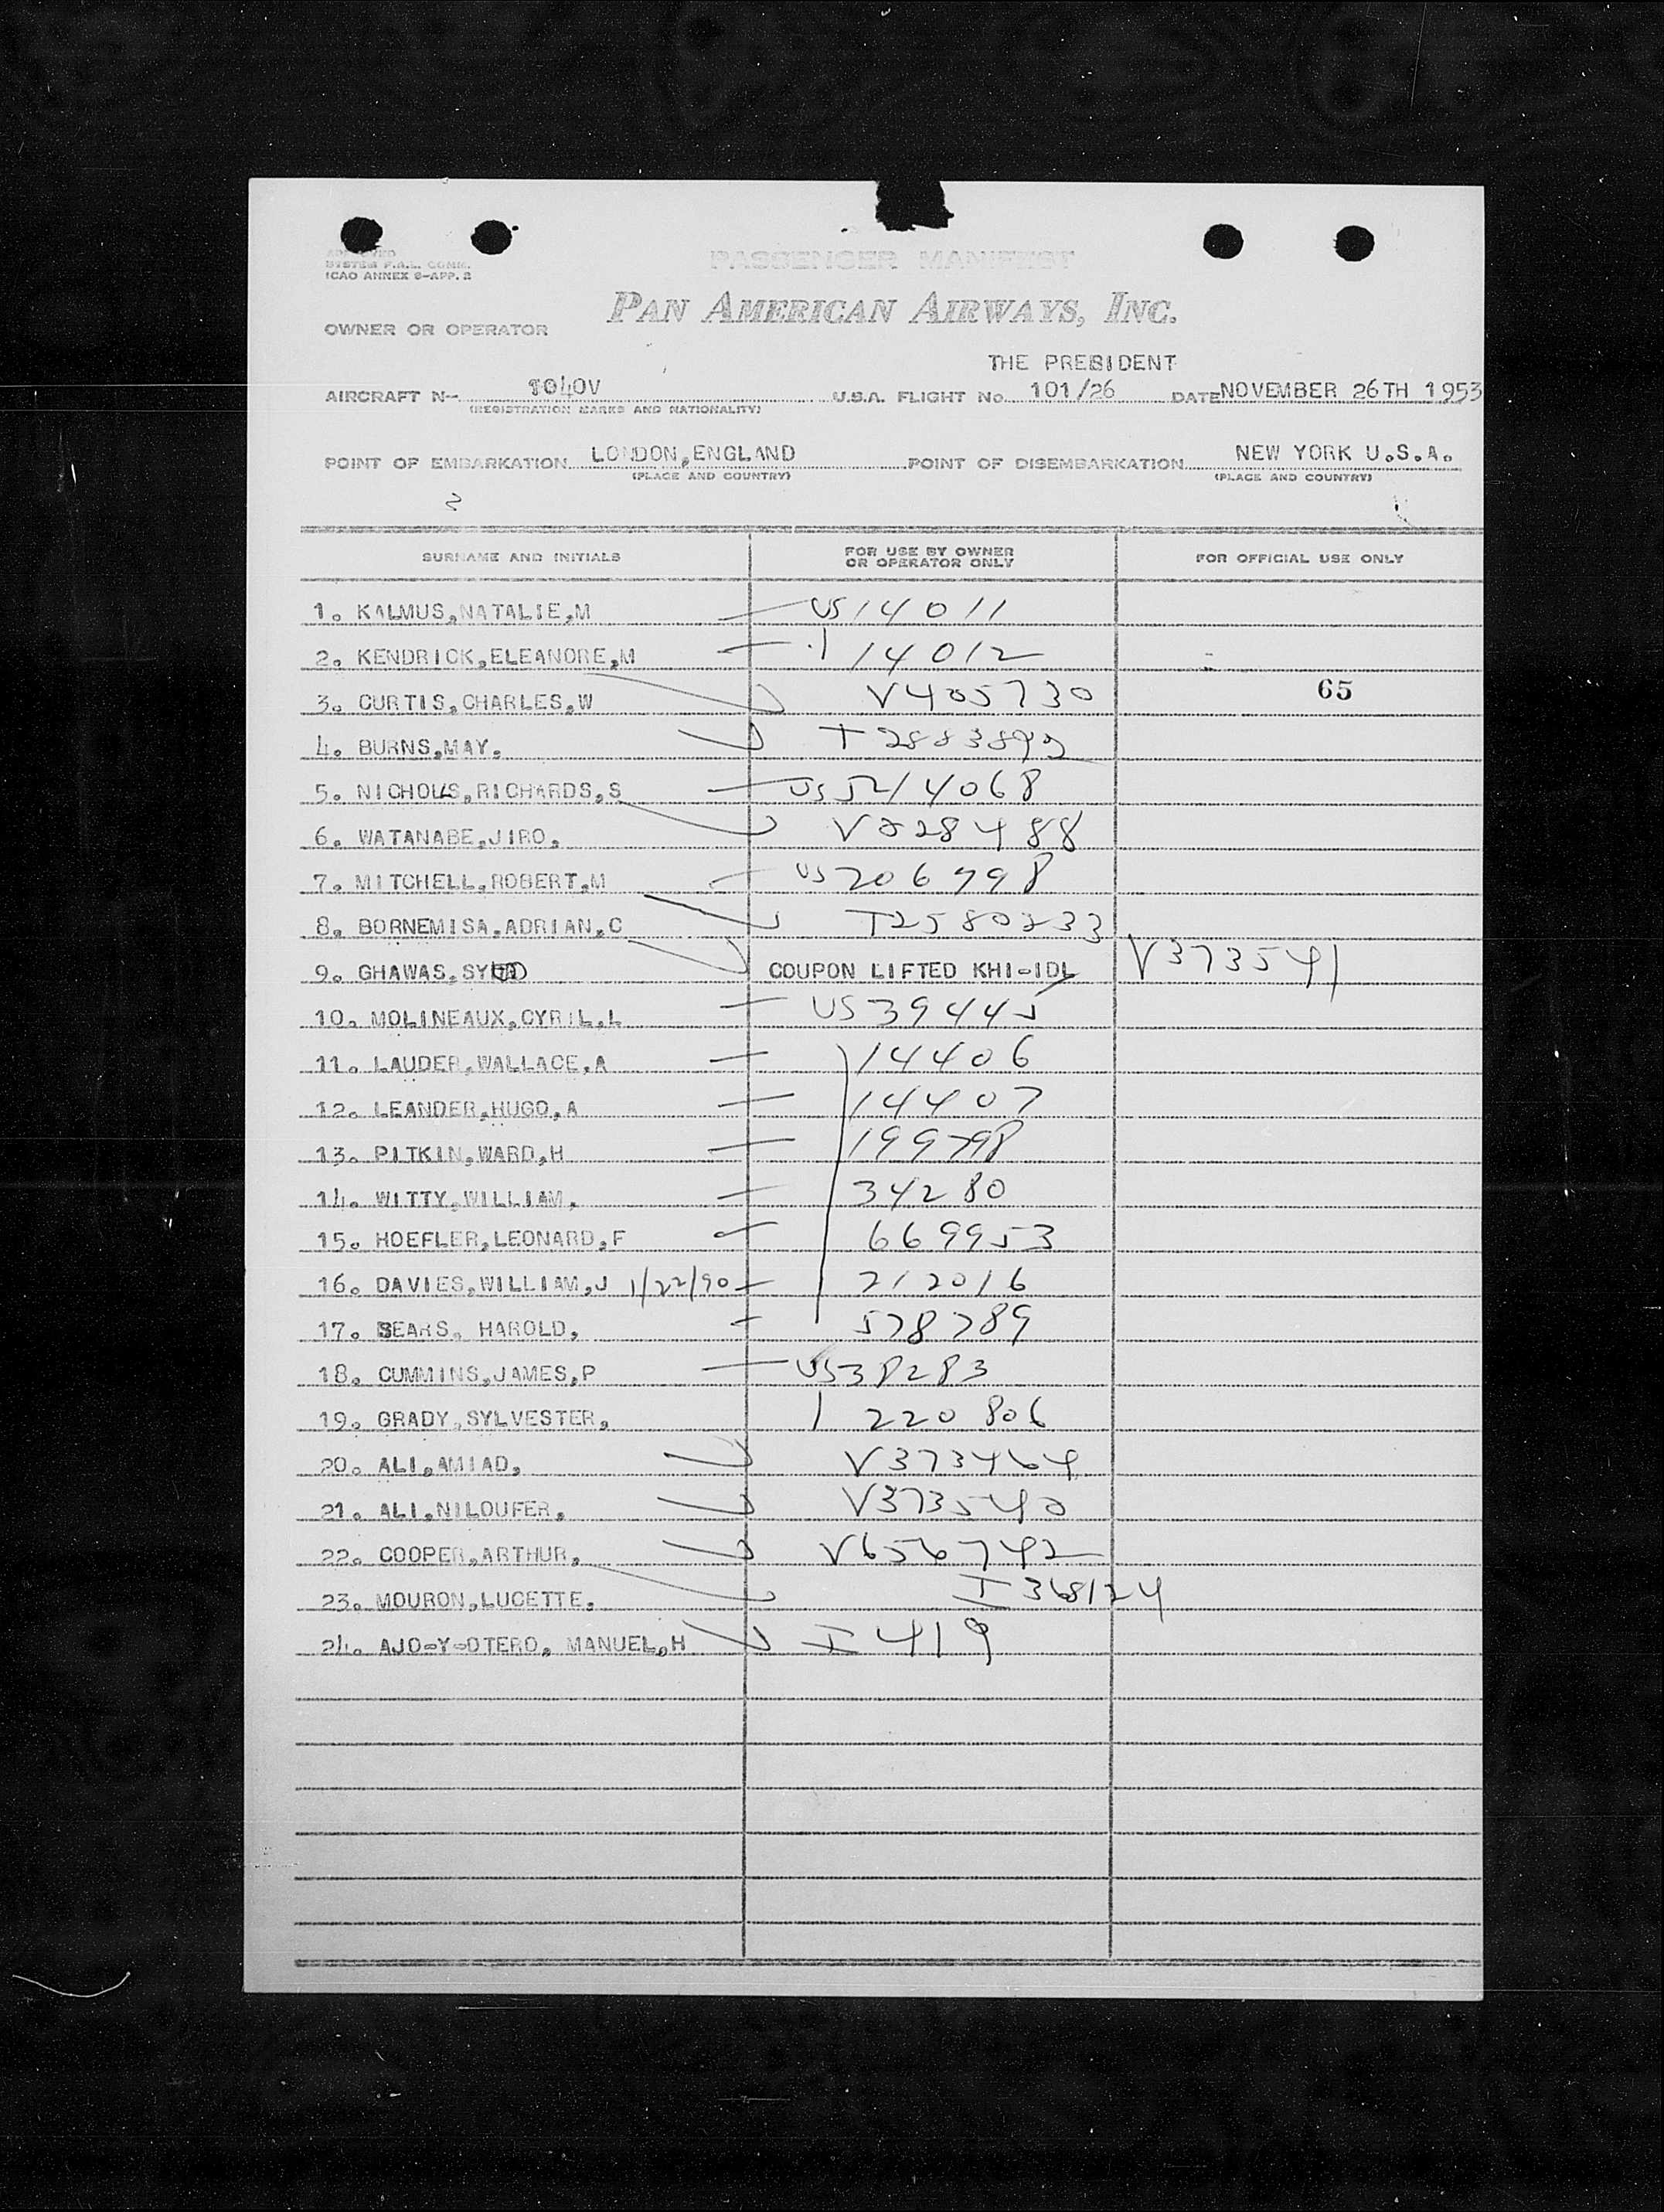 APPROVED
SYSTEM F.A.L. COMM.
ICAO ANNEX 9-APP. 2
PASSENGER MANIFEST
PAN AMERICAN AIRWAYS, INC.
OWNER OR OPERATOR
THE PRESIDENT
AIRCRAFT N- 1040V U.S.A. FLIGHT No. 101/26 DATE NOVEMBER 26TH 1953
(REGISTRATION MARKS AND NATIONALITY)
POINT OF EMBARKATION LONDON, ENGLAND POINT OF DISEMBARKATION NEW YORK U.S.A.
(PLACE AND COUNTRY) (PLACE AND COUNTRY)
SURNAME AND INITIALS FOR USE BY OWNER OR OPERATOR ONLY FOR OFFICIAL USE ONLY
1. KALMUS,NATALIE,M US14011
2. KENDRICK,ELEANORE,M 14012
3. CURTIS,CHARLES,W V405730 65
4. BURNS,MAY.
5. NICHOLS,RICHARDS,S US 5214068
6. WATANABE,JIRO. V228488
7. MITCHELL,ROBERT,M US 206798
8. BORNEMISA,ADRIAN,C T2580233
9. GHAWAS,SYED COUPON LIFTED KHI-IDL V373541
10. MOLINEAUX,CYRIL,L US39445
11. LAUDER,WALLACE,A 14406
12. LEANDER,HUGO,A 14407
13. PITKIN,WARD,H 199798
14. WITTY,WILLIAM. 34280
15. HOEFLER,LEONARD,F 669953
16. DAVIES,WILLIAM,J 1/22/90 212016
17. SEARS, HAROLD, 578789
18. CUMMINS,JAMES,P US38283
19. GRADY,SYLVESTER, 220806
20. ALI,AMIAD, V373464
21. ALI,NILOUFER. V373540
22. COOPER,ARTHUR, V656742
23. MOURON,LUCETTE. I368124
24. AJO-Y-OTERO, MANUEL,H I419